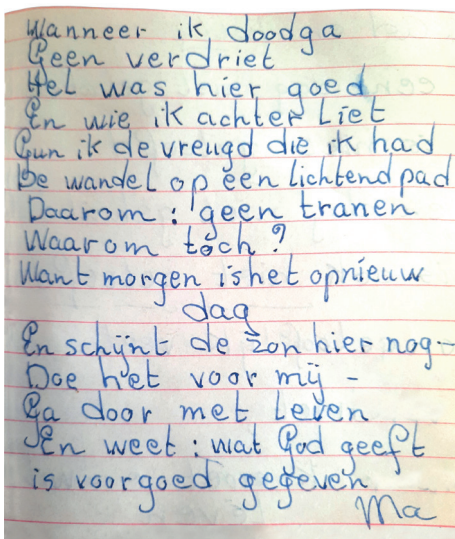 Wanneer ik doodga
Geen verdriet
Het was hier goed
En wie ik achter liet
Gun ik de vreugd die ik had
De wandel op een lichtend pad
Daarom : geen tranen
Waarom tóch ?
Want morgen is het opnieuw
dag
En schijnt de zon hier nog -
Doe het voor mij -
Ga door met leven
En weet : wat God geeft
is voorgoed gegeven
Ma